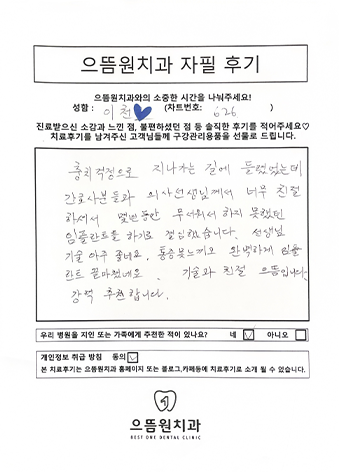 으뜸원치과 자필 후기
으뜸원치과와의 소중한 시간을 나눠주세요!
성함 : 이천 (차트번호: 626 )
진료받으신 소감과 느낀 점, 불편하셨던 점 등 솔직한 후기를 적어주세요♡
치료후기를 남겨주신 고객님들께 구강관리용품을 선물로 드립니다.
충치걱정으로 지나가는 길에 들렸었는데
간호사분들과 의사선생님께서 너무 친절
하셔서 몇년동안 무서워서 하지 못했던
임플란트를 하기로 결심했습니다. 선생님
기술 아주 좋네요. 통증못느끼고 완벽하게 임플
란트 끝마쳤네요. 기술과 친절 으뜸입니다
강력 추천합니다.
우리 병원을 지인 또는 가족에게 추천한 적이 있나요? 네 아니오
개인정보 취급 방침 동의
본 치료후기는 으뜸원치과 홈페이지 또는 블로그,카페등에 치료후기로 소개 될 수 있습니다.
으뜸원치과
BEST ONE DENTAL CLINIC